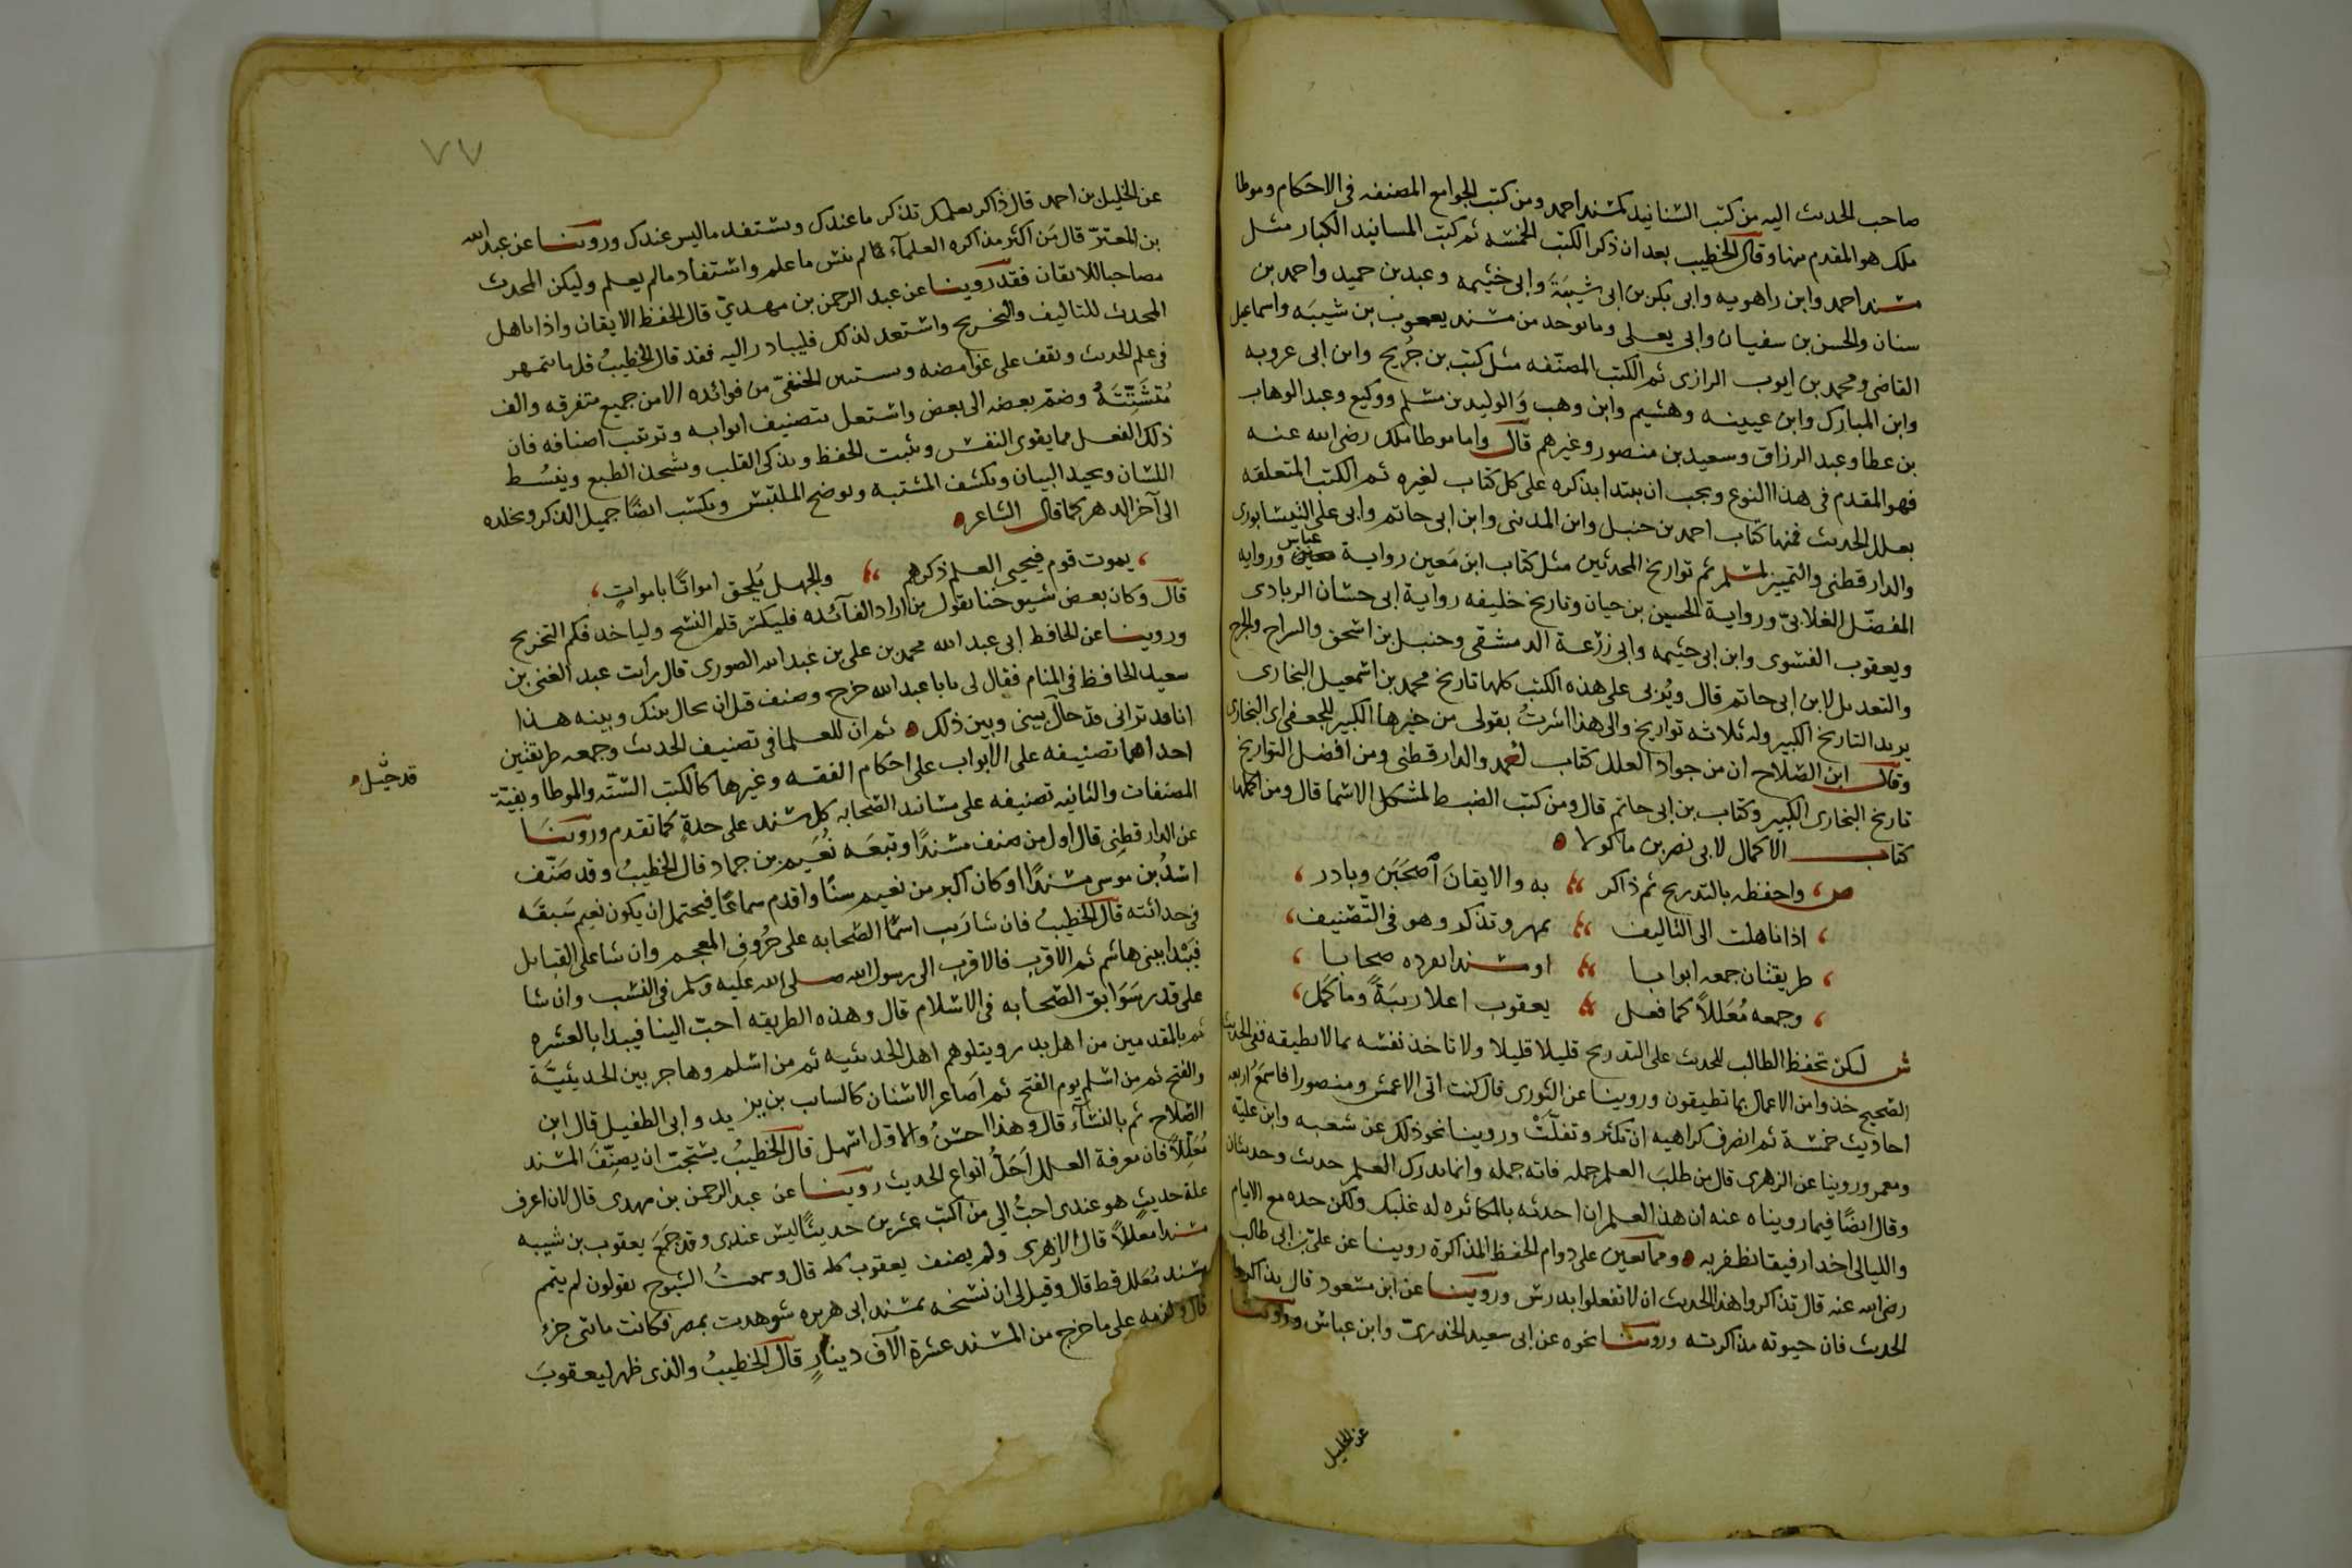 صاحب الحديث اليه من كتب المسانيد كمسند احمد ومن كتب الجوامع المصنفه فى الاحكام وموطا
ملك هو المقدم منها وقال الخطيب بعد ان ذكر الكتب الخمسه ثم كتب المسانيد الكبار مثل
مسند احمد وابن راهويه وابى بكر بن ابى شيبَةَ وابى خثيمه وعبد بن حميد واحمد بن
سنان والحسن بن سفيان وابى يعلى وما يوجد من مسند يعقوب بن شيبَه واسماعيل
القاضى ومحمد بن ايوب الرازى ثم الكتب المصنّفه مثل كتب بن جُريح وابن ابى عروبه
وابن المبارك وابن عيينه وهشيم وابن وهب وَالوليد بن مسلم ووكيع وعبد الوهاب
بن عطا وعبد الرزاق وسعيد بن منصور وغيرهم قال واما موطا ملك رضى الله عنه
فهو المقدم فى هذا النوع ويجب ان يبتدا بذكره على كل كتاب لغيره ثم الكتب المتعلقه
بعلل الحديث فمنها كتاب احمد بن حنبل وابن المدينى وابن ابى حاتم وابى على النيسابورى
والدارقطنى والتمييز لمسلم ثم تواريخ المحدثين مثل كتاب ابن مَعين رواية عباس وروايه
المفضّل الغلابىّ ورواية الحسين بن حيان وتاريخ خليفه رواية ابى حسان الزيادى
ويعقوب الفسوى وابن ابى خثيمه وابى زرعة الدمشقى وحنبل بن اسحق والسراج والجرح
والتعديل لابن ابى حاتم قال ويُربى على هذه الكتب كلها تاريخ محمد بن اسمعيل البخارى
يريد التاريخ الكبير وله ثلاثه تواريخ والى هذا اشرتُ بقولى من خيرها الكبير للجعفى اى البخارى
وقال ابن الصّلاح ان من جواد العلل كتاب لاحمد والدارقطنى ومن افضل التواريخ
تاريخ البخارى الكبير وكتاب بن ابى حاتم قال ومن كتب الضبط لمشكل الاسما قال ومن اكملها
كتاب الاكمال لابى نصر بن ماكولا ه
ص، واحفظه بالتدريج ثم ذاكر ؛ به والايقانَ اصحَبَن وبادر ،
، اذا تاهلت الى التاليف ؛ تمهر وتذكر وهو فى التّصنيف ،
، طريقتان جمعه ابوابا ؛ او مسندا تفرده صحابا ،
، وجمعه مُعَللاً كما فعل ؛ يعقوب اعلا رتبَةً وما كَمَل ،
ش ليكن تحفظ الطالب للحديث على التدريج قليلا قليلا ولا تاخذ نفسه بما لا يطيقه ففى الحديث
الصحيح خذوا من الاعمال بما تطيقون وروينا عن الثورى قال كنت اتى الاعمش ومنصورا فاسمَعُ اربعه
احاديث خمسة ثم انصرف كراهيه ان تكثر وتفلّتْ وروينا نحو ذلك عن شعبه وابن عليّه
ومعمر وروينا عن الزهرى قال من طلبَ العلم جمله فاته جمله وانما يدرك العلم حديث وحديثان
وقال ايضًا فيما رويناه عنه ان هذا العلم ان اخدته بالمكاثره له غلبك ولكن خده مع الايام
والليالى اخدا رفيقا تظفر به ه ومما يعين على دوام الحفظ المذاكرة روينا عن علىّ بن ابى طالب
رضى الله عنه قال تذاكروا هذا الحديث ان لا تفعلوا يدرس وروينا عن ابن مسعود قال تذاكروا
الحديث فان حيوته مذاكرته وروينا نحوه عن ابى سعيد الخدرىّ وابن عباس وروينا
عن الخليل
٧٧
عن الخليل بن احمد قال ذاكر بعلمك تذكر ما عندك وتستفد ما ليس عندك وروينا عن عبد الله
بن المعتزّ قال مَن اكثر مذاكره العلمآء لم ينس ما علم واستفاد ما لم يعلم وليكن المحدث
مصاحبا للاتقان فقد روينا عن عبد الرحمن بن مهدىّ قال الحفظ الايقان واذا تاهل
المحدث للتاليف والتخريج واستعد لذلك فليبادر اليه فقد قال الخطيبُ قل ما يتمهر
فى علم الحديث ويقف على غوامضه ويستبين الخفىّ من فوائده الا من جميع متفرقه والف
مُتشَتِّتَهُ وضم بعضه الى بعض واشتعل بتصنيف ابوابه وترتيب اصنافه فان
ذلك الفعل مما يقوى النفس ويثبت الحفظ ويذكى القلب ويشحذ الطبع ويبسُط
اللسان ويجيد البيان ويكشف المشتبه ويوضح الملتبس ويكسب ايضًا جميل الذكر ويخلده
الى آخر الدهر كما قال الشاعر ه
، يموت قوم فيحيى العلم ذكرهم ؛ والجهل يُلحق امواتًا باموات ،
قال وكان بعض شيوخنا يقول من اراد الفآئده فليكسر قلم النسخ ولياخد قلم التخريج
وروينا عن الحافظ ابى عبد الله محمد بن على بن عبد الله الصورى قال رأيت عبد الغنى بن
سعيد الحافظ فى المنام فقال لى يابا عبد الله خرج وصنف قبل ان يحال بينك وبينه هذا
انا قد ترانى قد حال بينى وبين ذلك ه ثم ان للعلما فى تصنيف الحديث وجمعه طريقتين
احداهما تصنيفه على الابواب على احكام الفقه وغيرها كالكتب الستّه والموطا وبقيّة
المصنفات والثانيه تصنيفه على مساند الصّحابه كل مسند على حدة كما تقدم وروينا
عن الدارقطنى قال اول من صنف مسندًا وتتبعَه نُعَيم بن حماد قال الخطيبُ وقد صَنّف
اسدُ بن موسى مسندًا وكان اكبر من نعيم سنًا واقدم سماعًا فيحتمل ان يكون نعيم سَبقَه
فى حداثته قال الخطيبُ فان شا رَتب اسمآ الصّحابه على حُروفِ المعجم وان شا على القبايل
فيَبْدا ببنى هاشم ثم الاقرب فالاقرب الى رسول الله صلى الله عليه وسلم فى النسب وان شا
على قدر سَوَابق الصّحابه فى الاسلام قال وهذه الطريقه احبّ الينا فيبدا بالعشره
ثم بالمقدمين من اهل بدر ويتلوهم اهل الحديبيه ثم من اسلم وهاجر بين الحديبيَّة
والفتح ثم من اسلم يوم الفتح ثم اَصَاغر الاسنان كالسايب بن يزيد وابى الطفيل قال ابن
الصّلاح ثم بالنسآء قال وهذا احسنُ والاول اسهل قال الخطيبُ يستحبّ ان يصنِّفَ المسند
مُعَلَّلاً فان معرفة العلل اَجَلُّ انواع الحديث روينا عن عبد الرحمن بن مهدى قال لان اعرف
علة حديثٍ هو عندى احبُّ الى من اكتب عشرين حديثًا ليس عندى وقد جَمَعَ يعقوب بن شيبه
مسندا معللاً قال الازهرى ولم يصنف يعقوب كله قال وسمعتُ الشيوخ يقولون لم يتمم
مسند مُعَلل قط قال وقيل لى ان نسخه بمسند ابى هريره شوهدت بمصر فكانت مائتى جزء
قال ولزمه على ما خرج من المسند عشرة آلاف دينارٍ قال الخطيبُ والذى ظهر ليعقوبَ